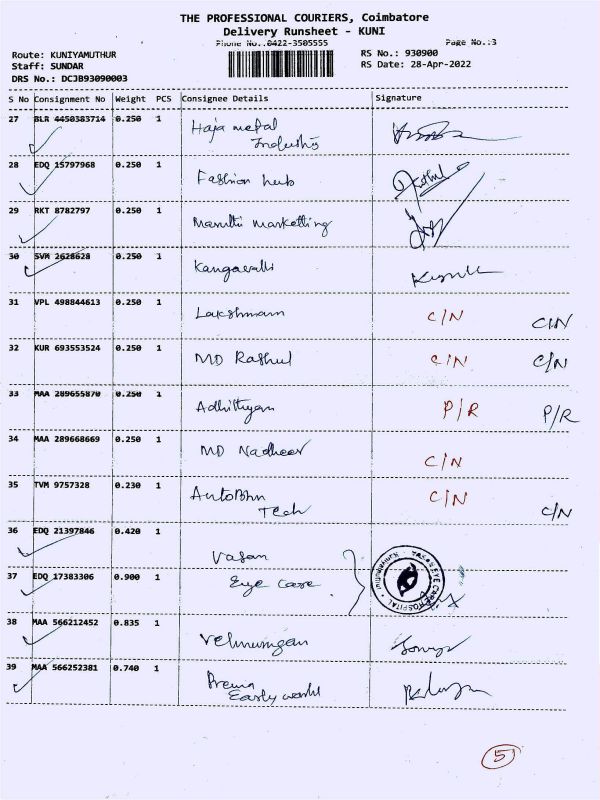 THE PROFESSIONAL COURIERS, Coimbatore
Delivery Runsheet - KUNI
Phone No.:0422-3505555 Page No.:3
Route: KUNIYAMUTHUR RS No.: 930900
Staff: SUNDAR RS Date: 28-Apr-2022
DRS No.: DCJB93090003
S No Consignment No Weight PCS Consignee Details Signature
27 BLR 4450383714 0.250 1 Haja metal
Industry
28 EDQ 15797968 0.250 1 Fashion hub
29 RKT 8782797 0.250 1 Maruthi marketting
30 SVM 2628628 0.250 1 Kangavalli
31 VPL 498844613 0.250 1 Lakshmam C/N C/N
32 KUR 693553524 0.250 1 MD Rashul C/N C/N
33 MAA 289655870 0.250 1 Adhithyan P/R P/R
34 MAA 289668669 0.250 1 MD Nadheer C/N
35 TVM 9757328 0.230 1 AutoBhn C/N
Tech C/N
36 EDQ 21397846 0.420 1 Vasan
37 EDQ 17383306 0.900 1 Eye care
38 MAA 566212452 0.835 1 Velmurugan
39 MAA 566252381 0.740 1 Prema
Early world
5